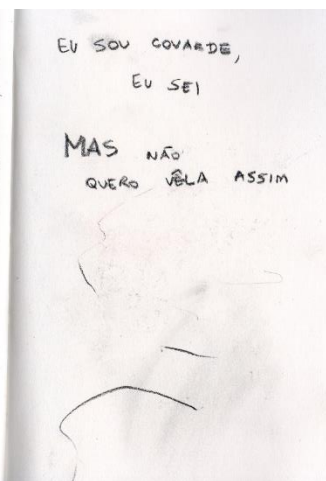 EU SOU COVARDE,
EU SEI
MAS NÃO
QUERO VÊLA ASSIM